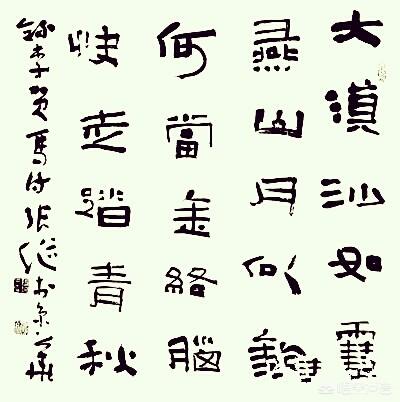 大漠沙如雪
燕山月似鉤
何當金絡腦
快走踏青秋
錄李賀馬詩張继於京華